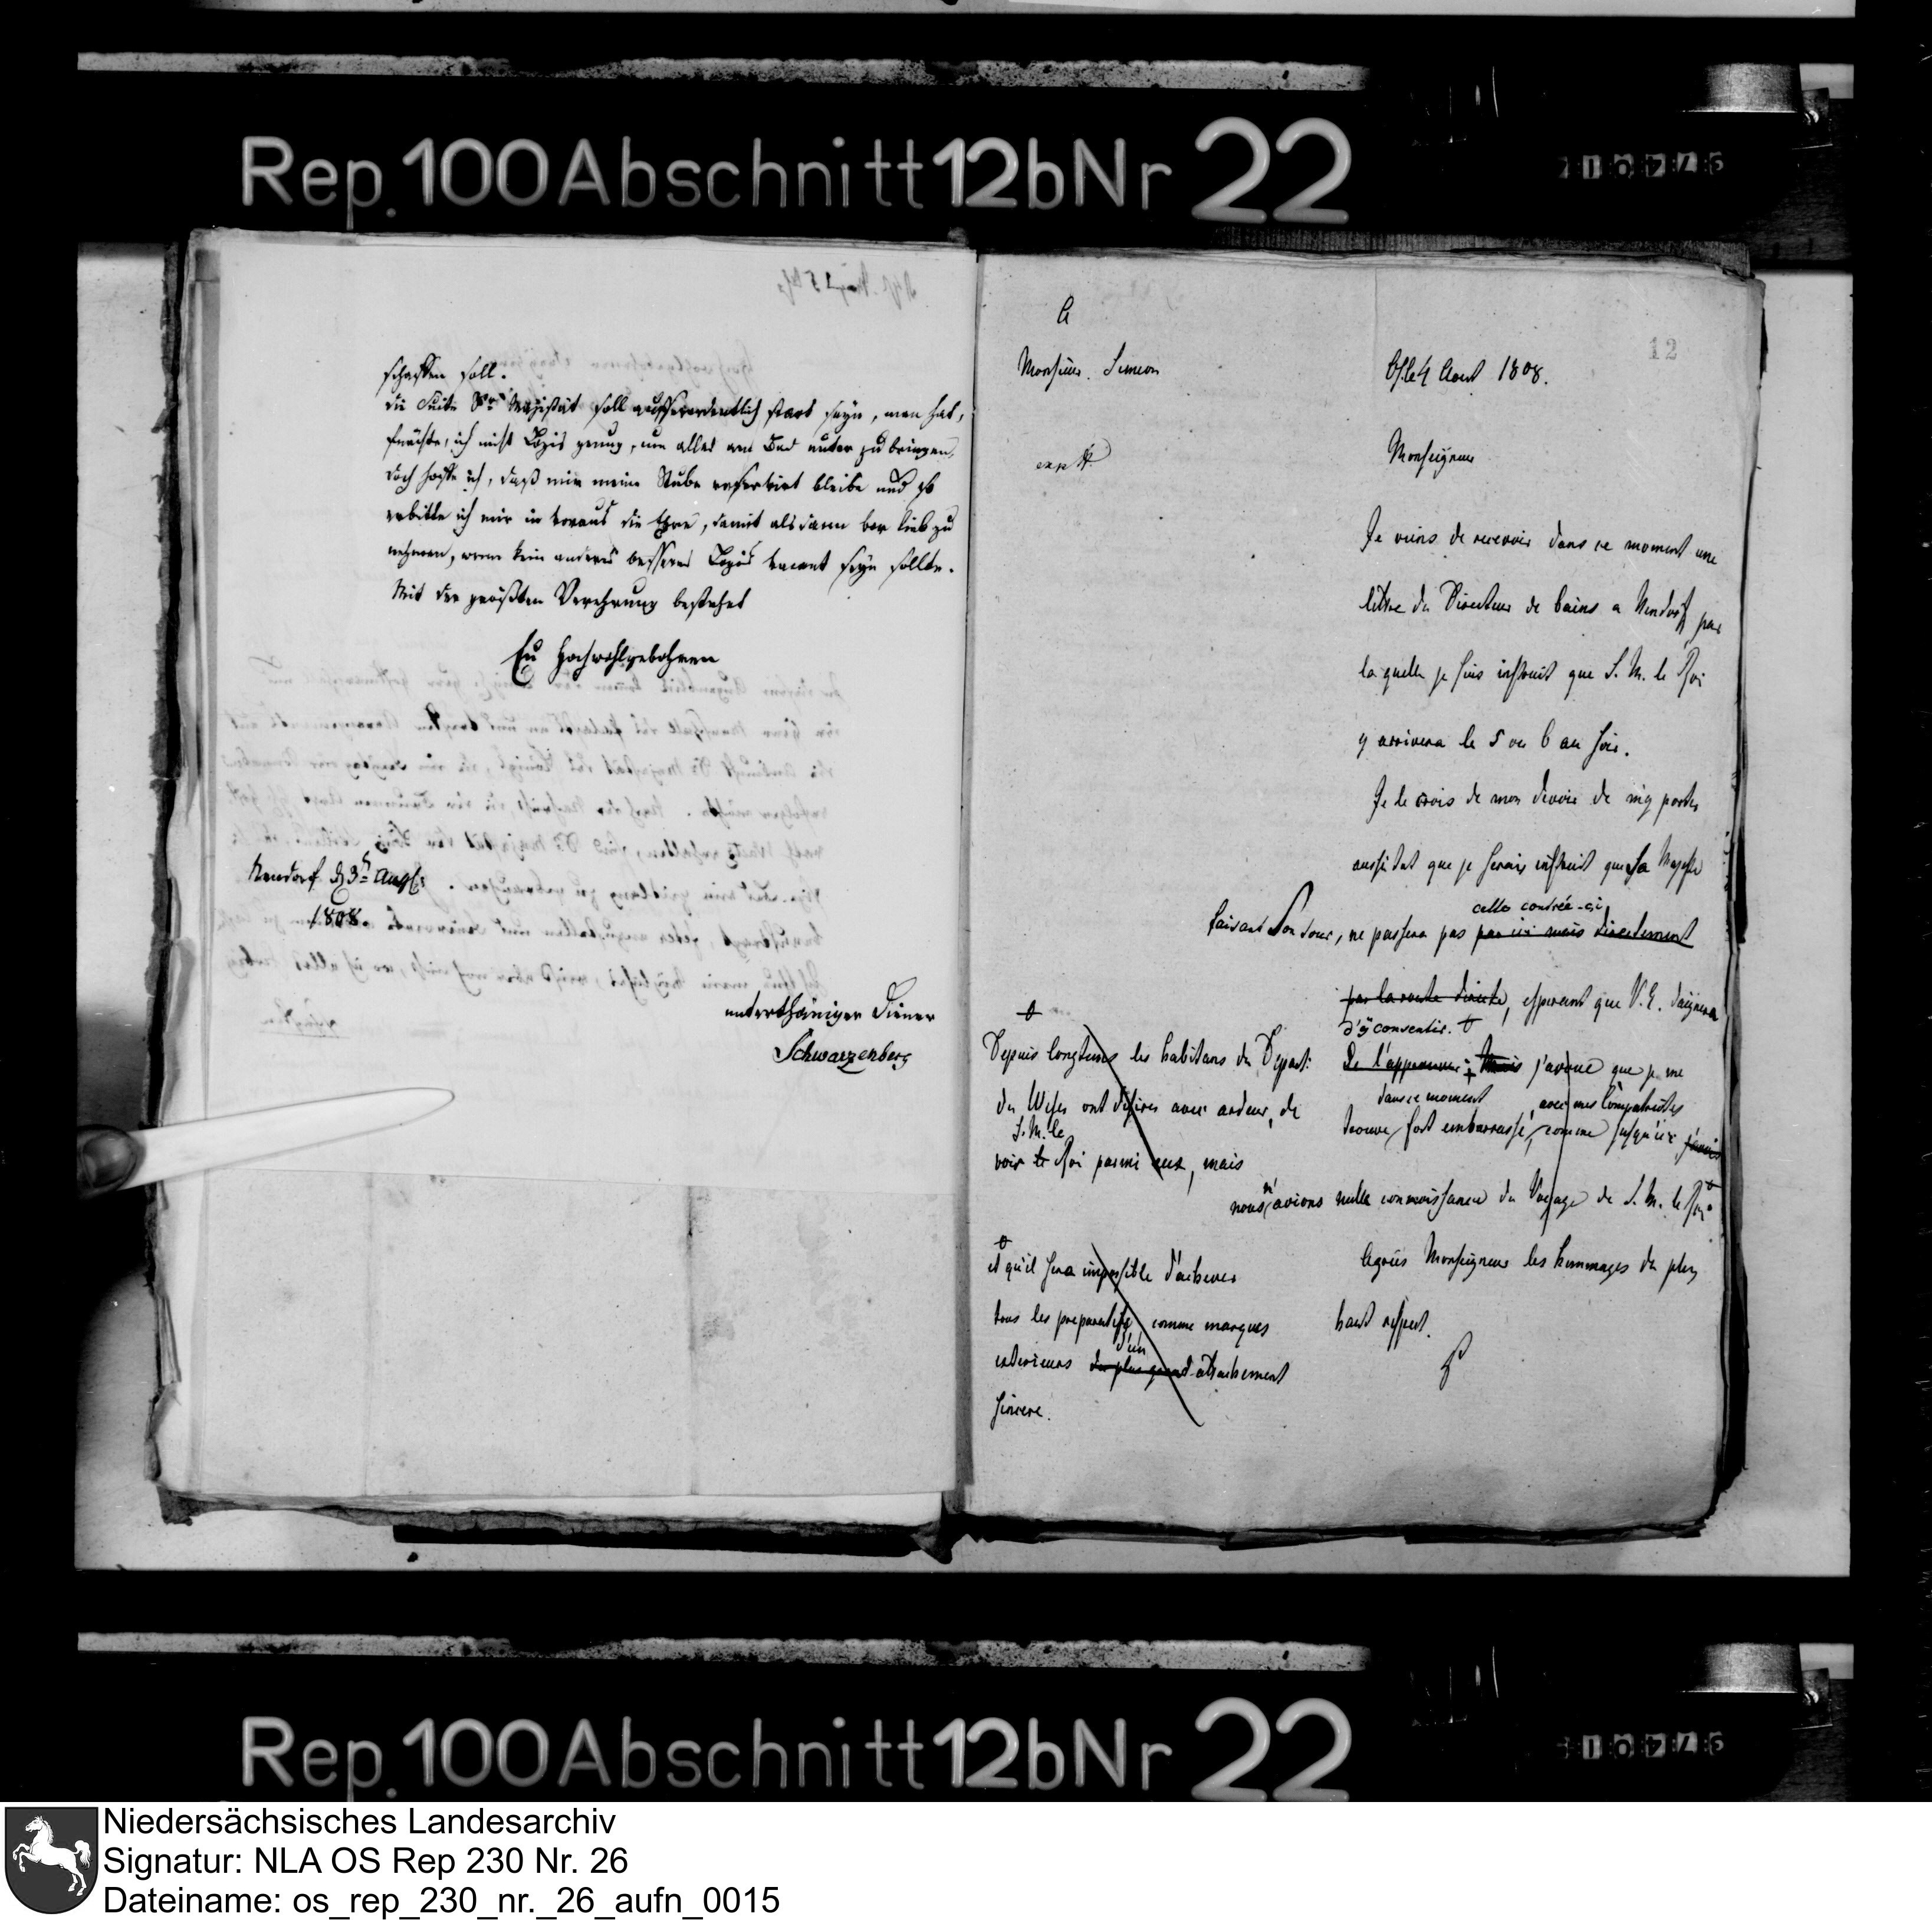 Rep. 100 Abschnitt 12b Nr 22
schaffen soll.
die Suite Sr Majestät soll ausserordentlich stark seyn, man hat,
fürchte, ich nicht Logis genug, um alles am Bad unter zu bringen,
doch hoffe ich, daß mir meine Stube reservirt bleibe und so
erbitte ich mir in voraus die Ehre, damit alsdann vor lieb zu
nehmen, wenn kein anderes besseres Logis vacant seyn sollte.
Mit der größten Verehrung bestehet
Eu Hochwohlgebohren
Nendorf d 3t Aug
1808.
unterthäniger Diener
Schwarzenberg
12
A
Monsieur Simeon
Osf. le 4 Aout 1808.
exp
Monseigneur
Je viens de recevoir dans ce moment une
lettre du Directeur de bains a Nendorff par
la quelle je suis instruit que S. M. le Roi
y arrivera le 5 ou 6 au soir.
Je le crois de mon devoir de m'y porter
aussitot que je serais instruit que Sa Majeste
cette contrée-ci,
faisant Son tour, ne passera pas par ici mais directement
par la route directe, esperant que V. E. daignera
d'y consentir.
De l'apperçevoir Mais j'avoue que je me
dans ce moment avec mes Compatriotes
trouve fort embarrassé, comme jusqu'ici j'avois
nous n'avions nulle connoissance du Voyage de S. M. le Roi
Agréés Monseigneur les hommages du plus
haut respect.
Depuis longtems les habitans du Depart:
du Weser ont desirés avec ardeur, de
S. M. le
voir le Roi parmi eux, mais
et qu'il sera impossible d'achever
tous les preparatifs comme marques
d'un
exterieures du plus grand attachement
sincere.
Rep. 100 Abschnitt 12b Nr 22
Niedersächsisches Landesarchiv
Signatur: NLA OS Rep 230 Nr. 26
Dateiname: os_rep_230_nr._26_aufn_0015